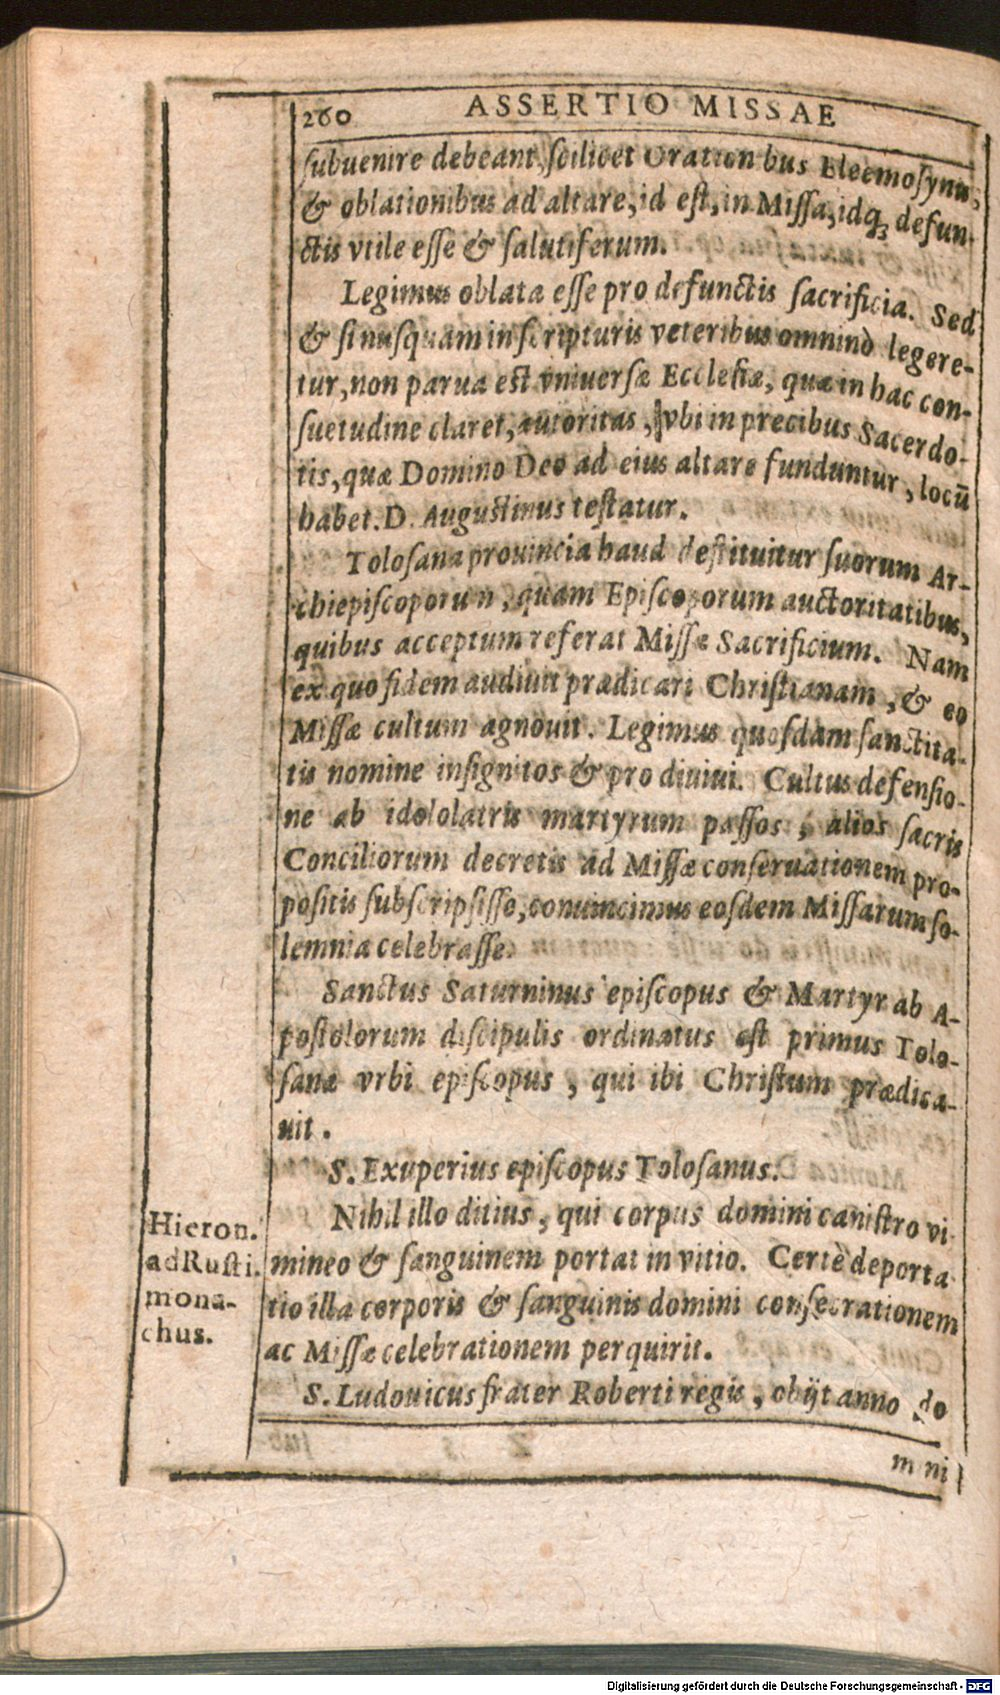 260 ASSERTIO MISSAE
ſubuenire debeant, ſcilicet Oration bus Eleemoſynis,
& oblationibus ad altare, id eſt, in Miſſa, idq; defun-
ctis vtile eſſe & ſalutiferum.
Legimus oblata eſſe pro defunctis ſacrificia. Sed
& ſi nuſquam in ſcripturis veteribus omninò legere-
tur, non parua est vniuerſæ Eccleſiæ, quæ in hac con-
ſuetudine claret, autoritas, vbi in precibus Sacerdo-
tis, quæ Domino Deo ad eius altare funduntur, locū
habet. D. Augustinus teſtatur.
Toloſana prouincia haud deſtituitur ſuorum Ar-
chiepiſcoporum, quam Epiſcoporum auctoritatibus,
quibus acceptum referat Miſſæ Sacrificium. Nam
ex quo fidem audiuit prædicari Chriſtianam, & eo
Miſſæ cultum agnouit. Legimus quoſdam ſanctita-
tis nomine inſignitos & pro diuiui. Cultus defenſio-
ne ab idololatris martyrum paſſos, alios ſacris
Conciliorum decretis ad Miſſæ conſeruationem pro-
poſitis ſubſcripſiſſe, conuincimus eoſdem Miſſarum ſo-
lemnia celebraſſe.
Sanctus Saturninus epiſcopus & Martyr ab A-
poſtolorum diſcipulis ordinatus est primus Tolo-
ſanæ vrbi epiſcopus, qui ibi Chriſtum prædica-
uit.
S. Exuperius epiſcopus Toloſanus.
Nihil illo ditius, qui corpus domini caniſtro vi
mineo & ſanguinem portat in vitio. Certè deporta
tio illa corporis & ſanguinis domini conſecrationem
ac Miſſæ celebrationem perquirit.
S. Ludouicus frater Roberti regis, obijt anno do
m ni
Hieron.
ad Ruſti.
mona-
chus.
Digitalisierung gefördert durch die Deutsche Forschungsgemeinschaft - DFG